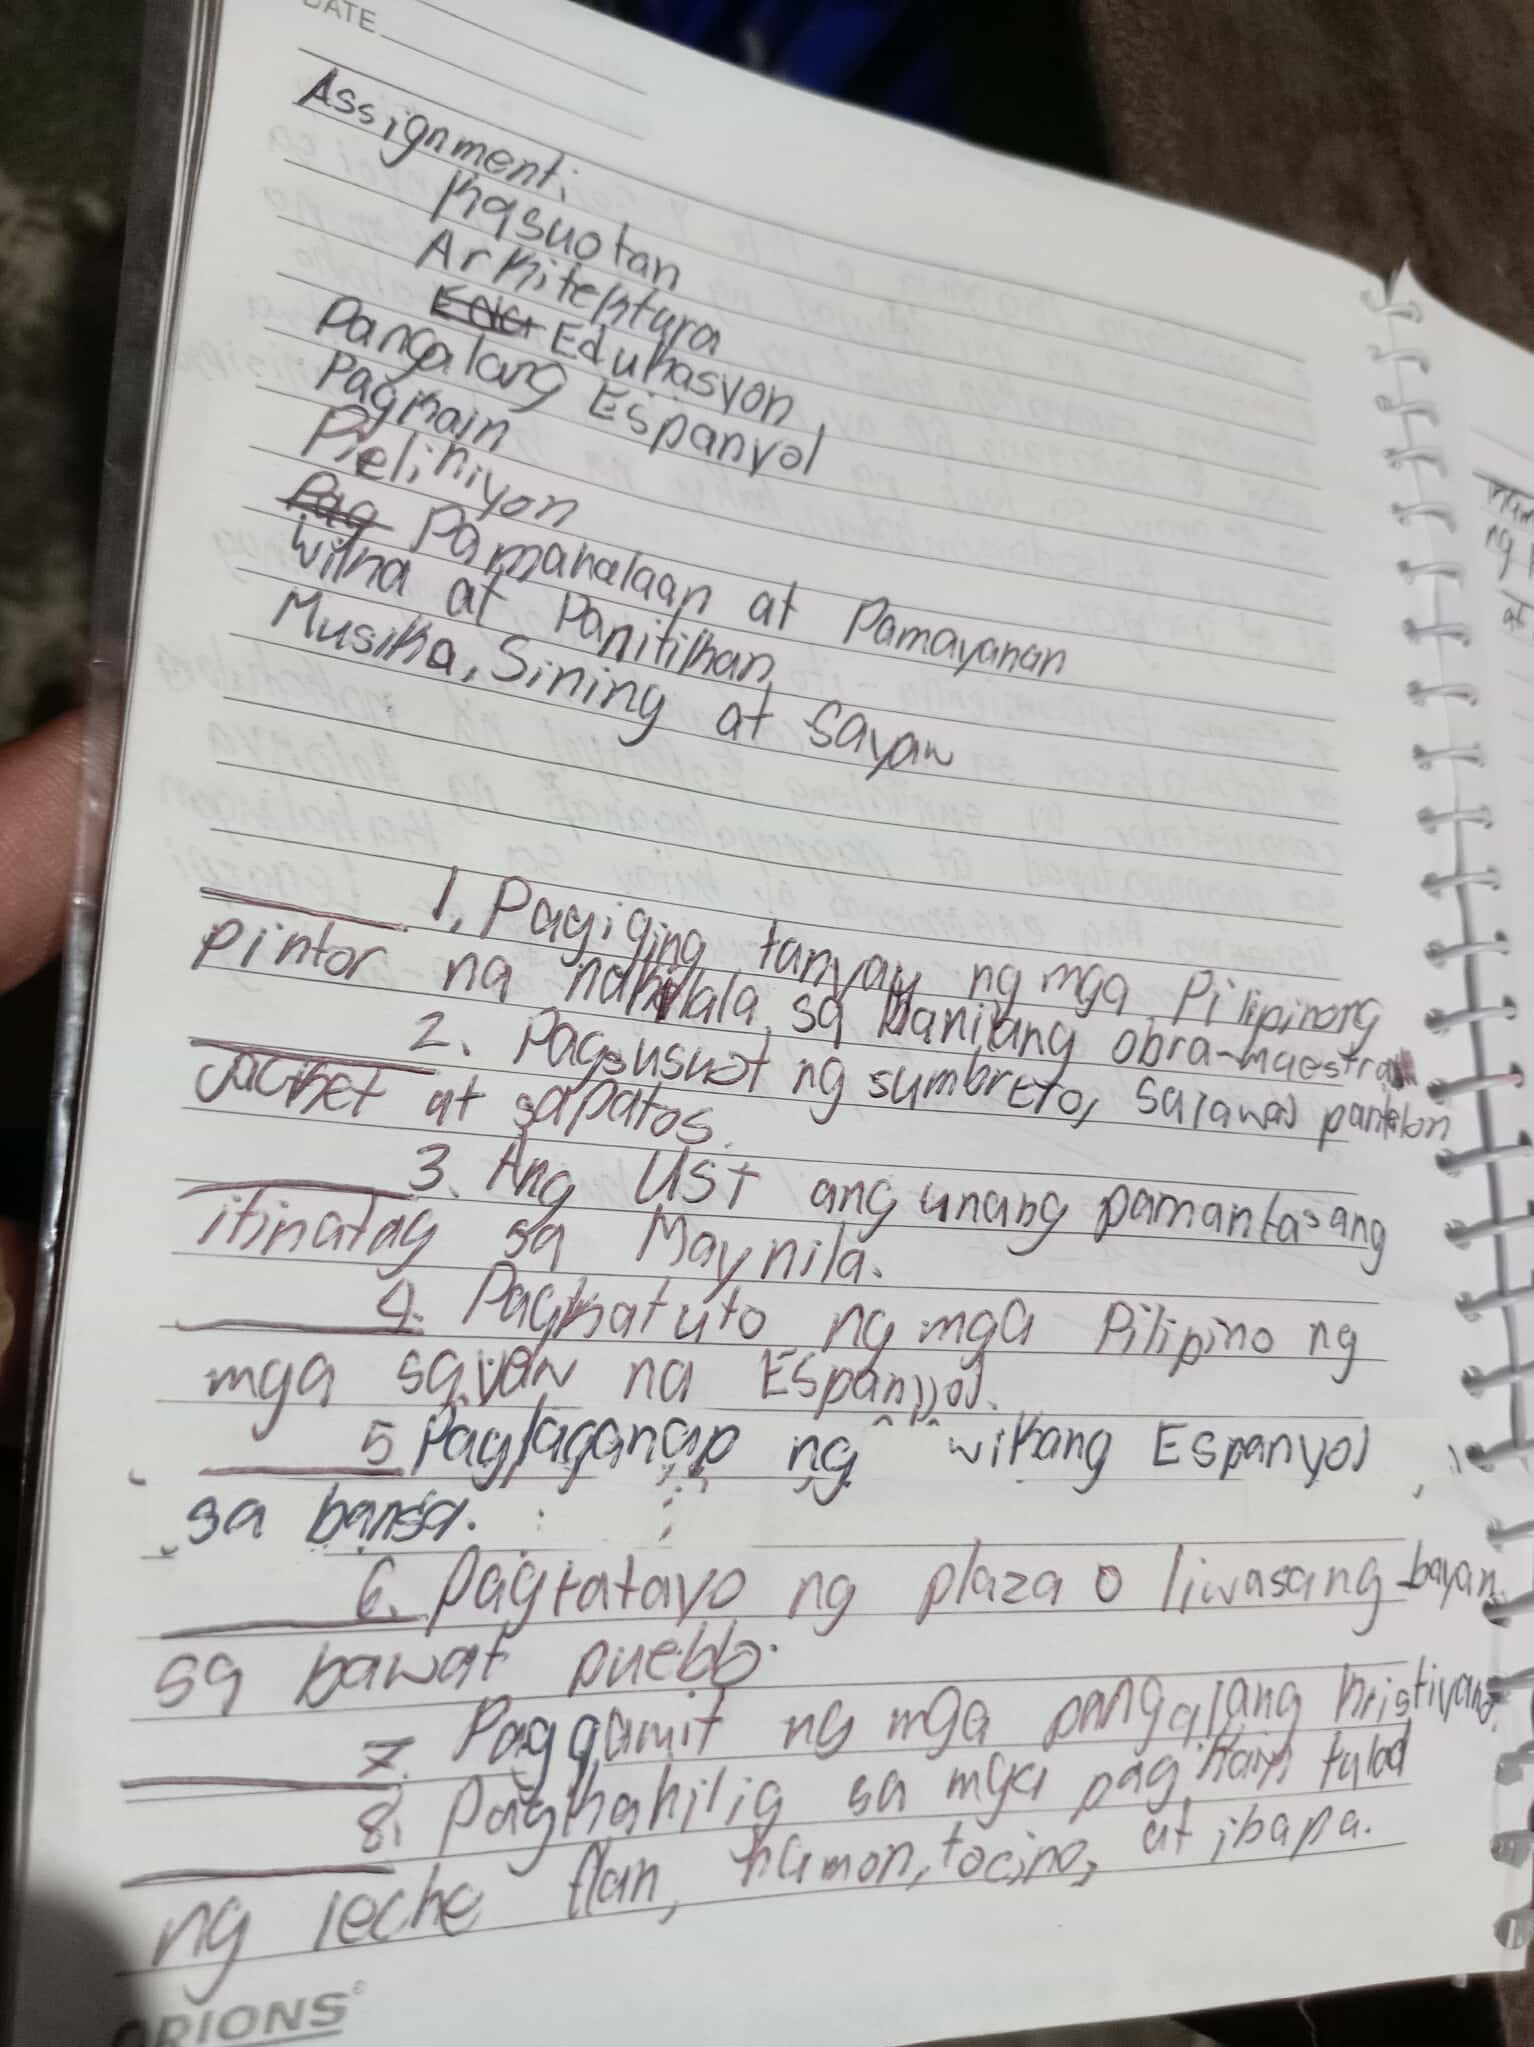 DATE
Assignment:
Kasuotan
Arkitektura
Edukasyon
Pangalang Espanyol
Pagkain
Relihiyon
Pag Pamahalaan at Pamayanan
Wika at Panitikan
Musika, Sining at Sayaw
1. Pagiging tanyag ng mga Pilipinong
pintor na nakilala sa kanilang obra-maestra
2. Pagsusuot ng sumbrero, salawal pantalon
Jacket at sapatos.
3. Ang UST ang unang pamantasang
itinatag sa Maynila.
4. Pagkatuto ng mga Pilipino ng
mga sayaw na Espanyol.
5 Paglaganap ng wikang Espanyol
sa bansa.
6. Pagtatayo ng plaza o liwasang bayan
sa bawat pueblo.
7. Paggamit ng mga pangalang kristiyano.
8. Pagkahilig sa mga pagkain tulad
ng leche flan, hamon, tocino, at iba pa.
ORIONS